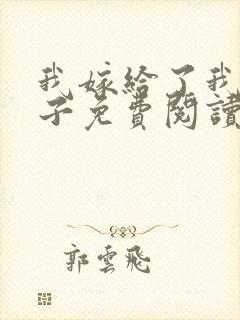 我嫁給了我
子免費閱讀
郭雲飛